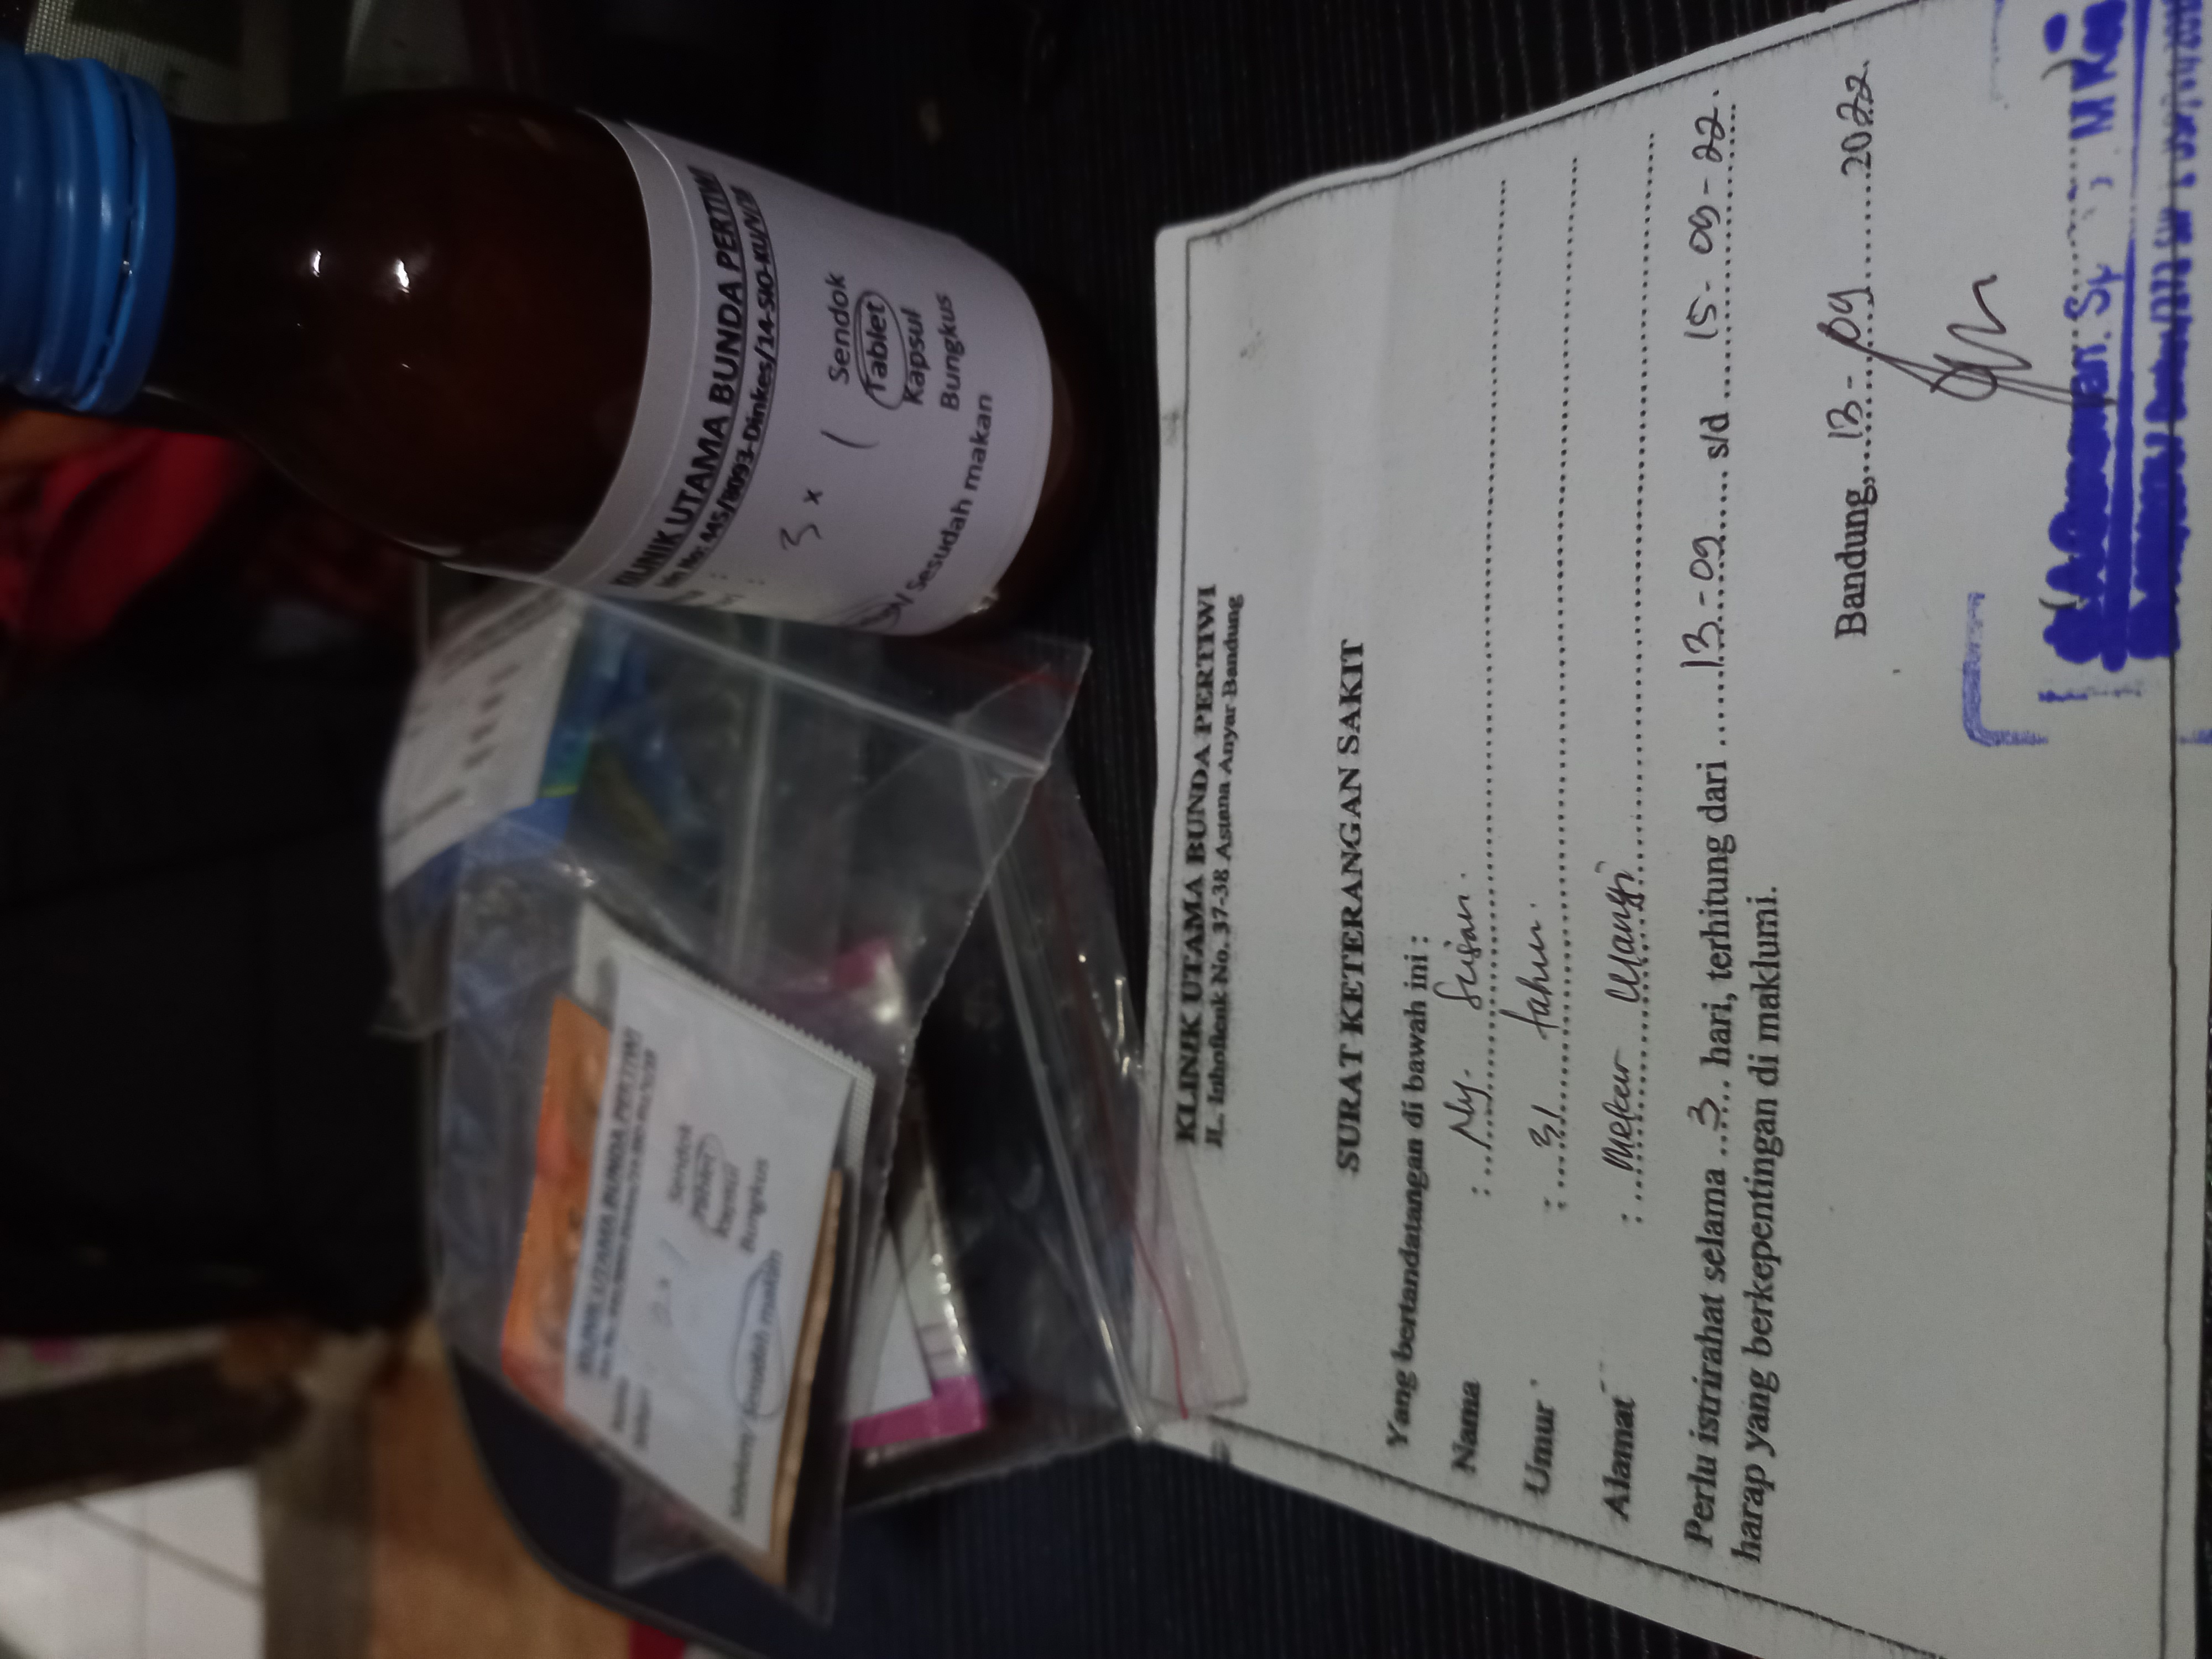 KLINIK UTAMA BUNDA PERTIWI
2 x 1
Sendok
Tablet
Kapsul
Bungkus
Sebelum/ Sesudah makan
KLINIK UTAMA BUNDA PERTIWI
No: 445/8093-Dinkes/14-SIO-KU/V/
3 x 1
Sendok
Tablet
Kapsul
Bungkus
/ Sesudah makan
KLINIK UTAMA BUNDA PERTIWI
JL. Inhoftenk No. 37-38 Astana Anyar Bandung
SURAT KETERANGAN SAKIT
Yang bertandatangan di bawah ini :
Nama : Ny. Susan.
Umur : 31 tahun.
Alamat : Mekar Wangi
Perlu istrirahat selama 3 hari, terhitung dari 13-09 s/d 15-09-22.
harap yang berkepentingan di maklumi.
Bandung, 13-09 2022.
Sp M Kes